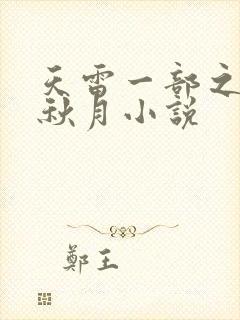 天雷一部之
秋月小說
鄭王